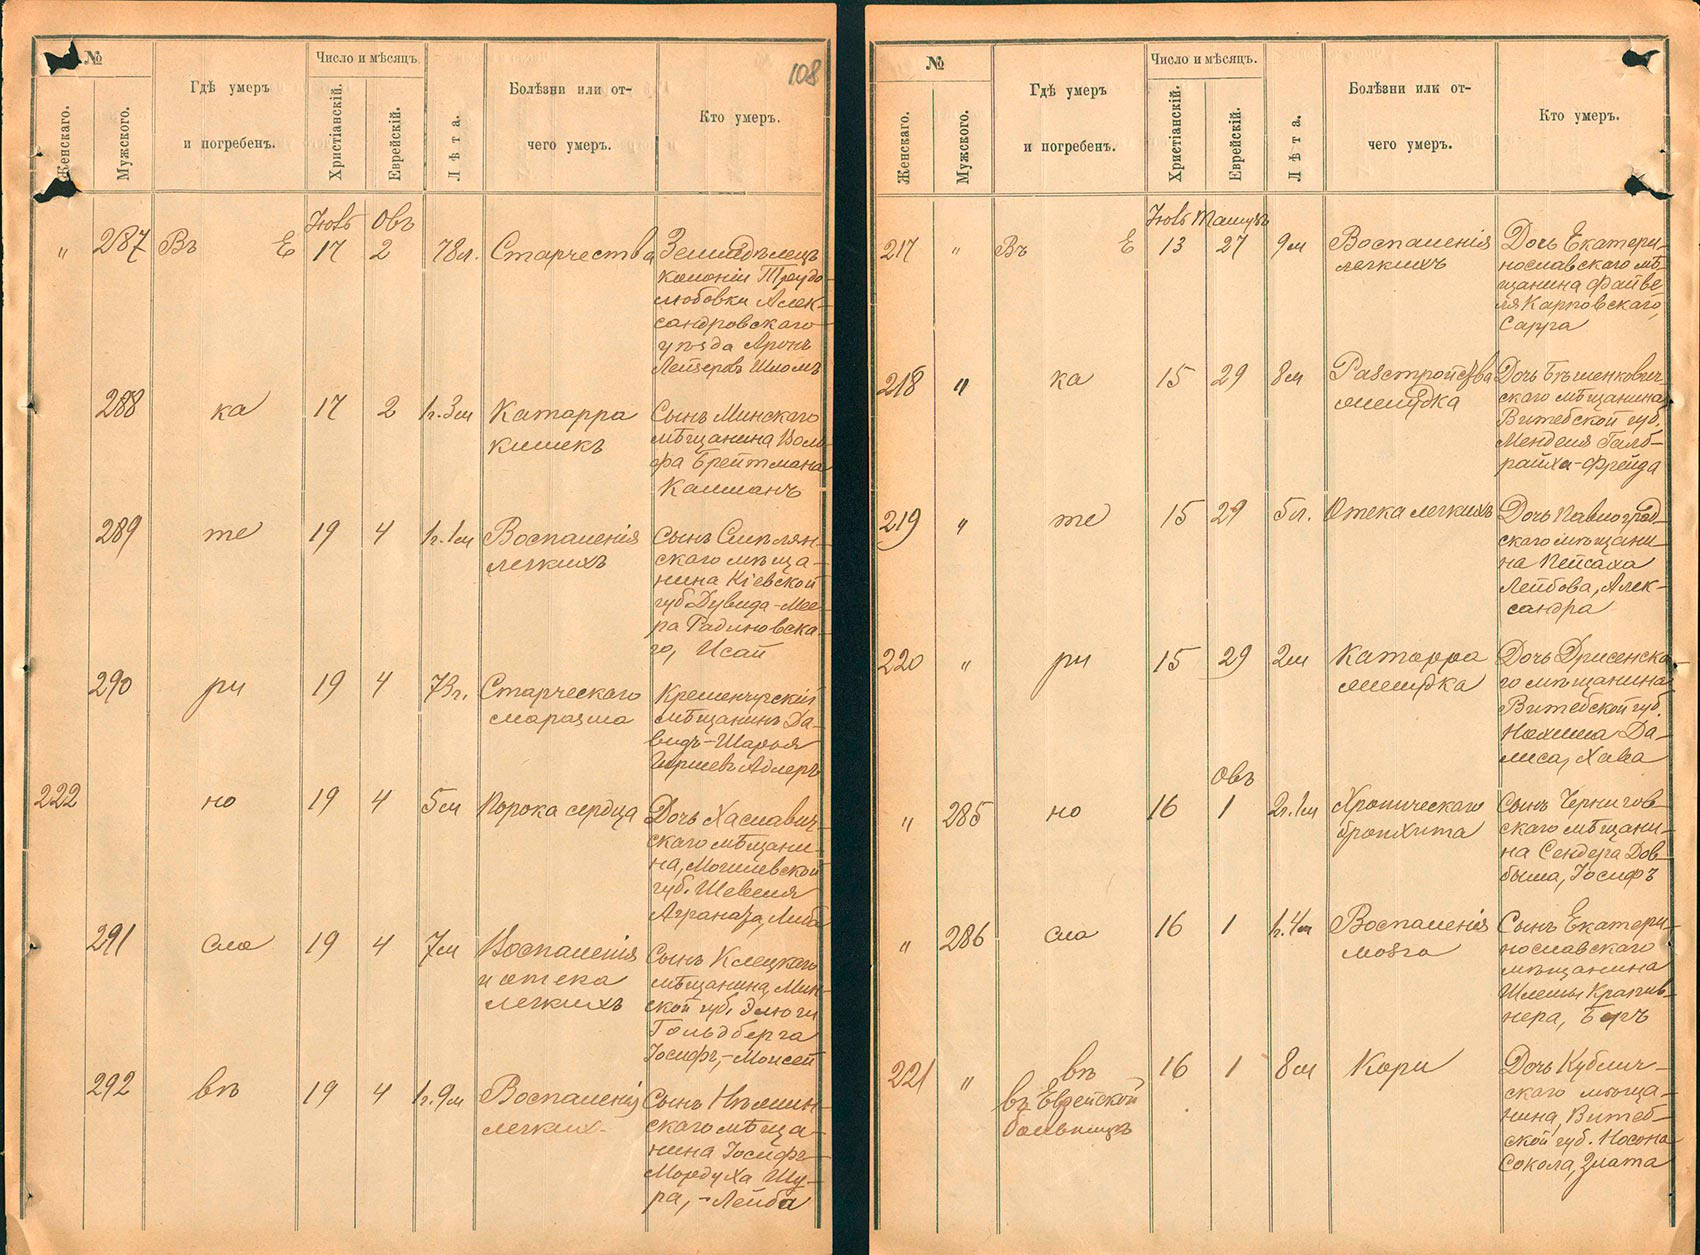 108
№
Женскаго.
Мужского.
Гдѣ умеръ
и погребенъ.
Число и мѣсяцъ.
Христіанскій.
Еврейскій.
Лѣта.
Болѣзни или от-
чего умеръ.
Кто умеръ.
Іюль Овъ
„ 287 Въ Е 17 2 78л. Старчества
Земледѣлецъ
колоніи Трудо-
любовки Алек-
сандровскаго
уѣзда Аронъ
Лейзеровъ Шломъ
288 ка 17 2 1г.3м Катарра
кишекъ
Сынъ Минскаго
мѣщанина Воль-
фа Брейтмана
Калманъ
289 те 19 4 1г.1м Воспаленія
легкихъ
Сынъ
скаго мѣща-
нина Кіевской
губ Дувида-Мее-
ра Радиновска-
го, Исай
290 ри 19 4 73г. Старческаго
маразма
Кременчугскій
мѣщанинъ Да-
видъ-Шарья
Адлеръ
222 но 19 4 5м Порока сердца
Дочь Хаславич-
скаго мѣщани-
на, Могилевской
губ. Шевеля
Аграната, Либа
291 сла 19 4 7м Воспаленія
и отека
легкихъ
Сынъ Клецкаго
мѣщанина, Мин-
ской губ. Элюги
Гольдберга
Іосифъ,-Моисей
292 вѣ 19 4 1г.9м Воспаленія
легких-
Сынъ
скаго мѣща-
нина Іосифъ
Мордуха Шу-
ра, -Лейба
№
Женскаго.
Мужского.
Гдѣ умеръ
и погребенъ.
Число и мѣсяцъ.
Христіанскій.
Еврейскій.
Лѣта.
Болѣзни или от-
чего умеръ.
Кто умеръ.
Іюль Тамузъ
217 „ Въ Е 13 27 9м Воспаленія
легкихъ
Дочь Екатери-
нославскаго мѣ-
щанина Файве-
ля Карповскаго,
Сарра
218 „ ка 15 29 8м Разстройства
желудка
Дочь Бѣшенкович-
скаго мѣщанина
Витебской губ.
Менделя Галь-
райха-Фрейда
219 „ те 15 29 5л. Отека легкихъ
Дочь Павлоград-
скаго мѣщани-
на Пейсаха
Лейбова, Алек-
сандра
220 „ ри 15 29 2м Катарра
желудка
Дочь Дрисенска-
го мѣщанина
Витебской губ.
Нохима Да-
лиса, Хава
Овъ
„ 285 но 16 1 2г.1м Хроническаго
бронхита
Сынъ Чернигов-
скаго мѣщани-
на Сендера Дов-
быша, Іосифъ
„ 286 сла 16 1 1г.4м Воспаленія
мозга
Сынъ Екатери-
нославскаго
мѣщанина
Шлемы Крапив-
нера, Беръ
221 „ вѣ 16 1 8м Кори
въ Еврейской
больницѣ
Дочь Кублич-
скаго мѣща-
нина, Витеб-
ской губ. Носона
Сокола, Злата